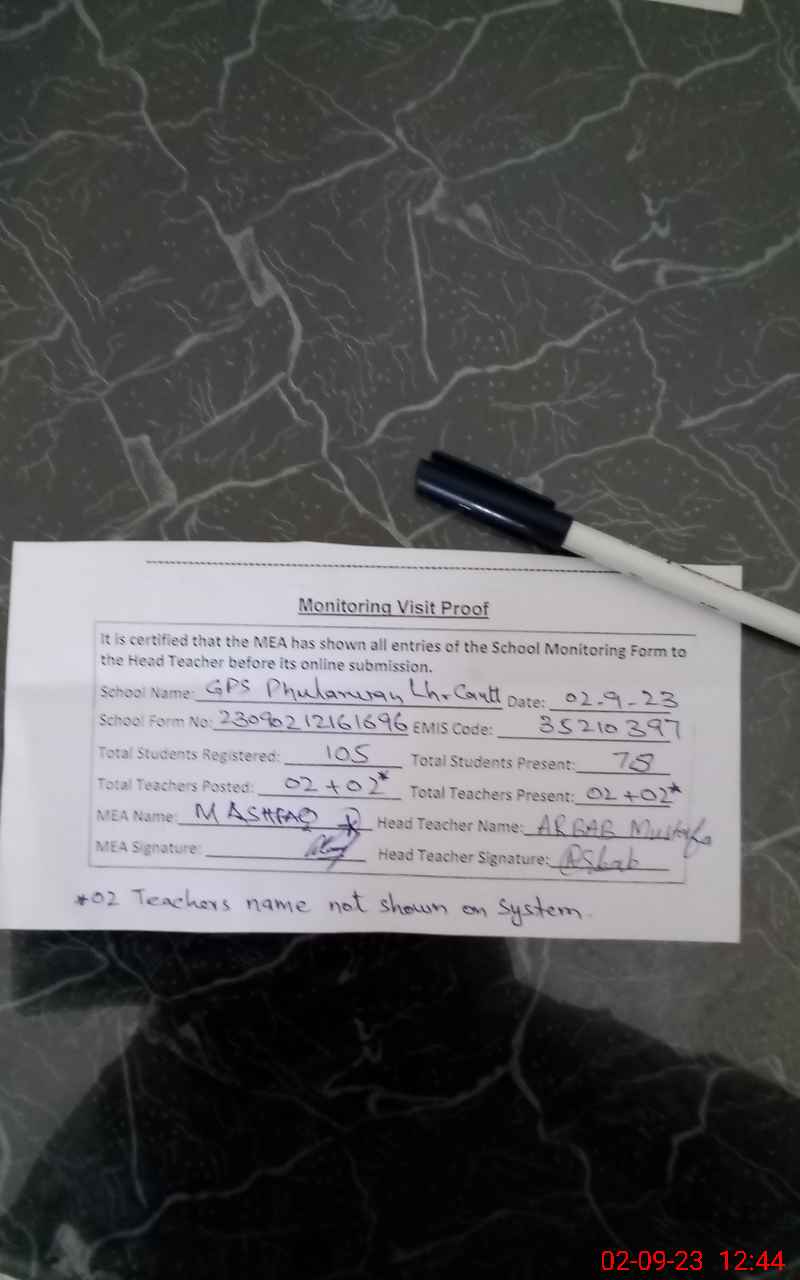 Monitoring Visit Proof
It is certified that the MEA has shown all entries of the School Monitoring Form to
the Head Teacher before its online submission.
School Name: GPS Phularwan Lhr Cantt Date: 02-9-23
School Form No: 23090212161696 EMIS Code: 35210397
Total Students Registered: 105 Total Students Present: 78
Total Teachers Posted: 02+02* Total Teachers Present: 02+02*
MEA Name: M ASHFAQ Head Teacher Name: ARBAB Mustafa
MEA Signature: Head Teacher Signature:
*02 Teachers name not shown on System.
02-09-23 12:44